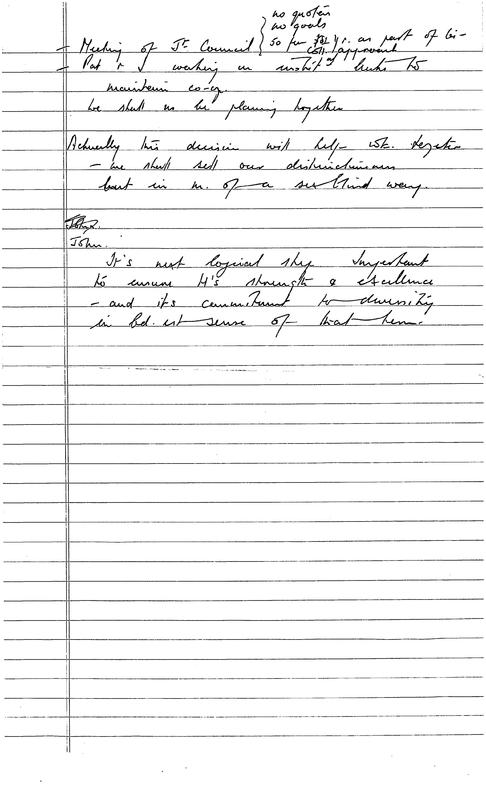 no quotas
no goals
- Meeting of Jt Council } so far as part of bi-
coll. approach
- Pat & I working on links to
maintain co-op.
we shall be planning together
Actually this decision will help wk. together
- we shall sell our distinctiveness
but in m. of a way.
John.
It's next logical step Important
to ensure H's strength & excellence
- and its commitment to diversity
in bd.est sense of that term.